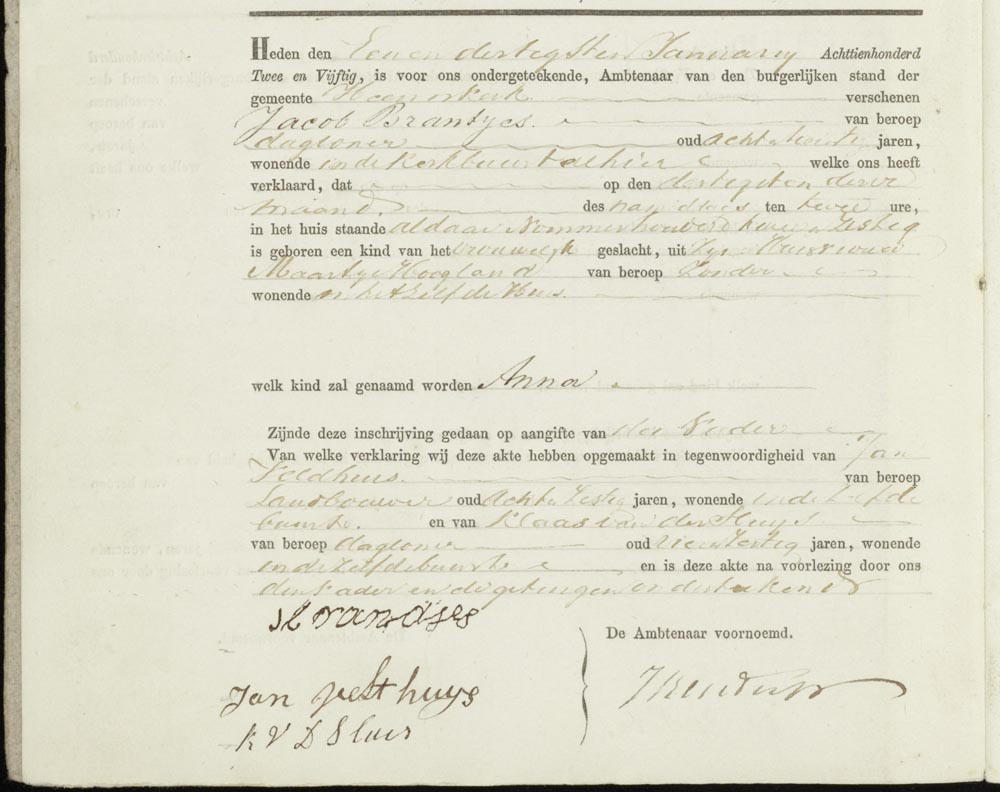 Heden den Een en dertigsten Januarij Achttienhonderd
Twee en Vijftig, is voor ons ondergeteekende, Ambtenaar van den burgerlijken stand der
gemeente Heemskerk verschenen
Jacob Brantjes van beroep
dagloner oud acht en twintig jaren,
wonende in de Kerkbuurt alhier welke ons heeft
verklaard, dat op den dertigsten dezer
maand des namiddags ten twee ure,
in het huis staande aldaar Nommer honderd twee en zestig
is geboren een kind van het vrouwelijk geslacht, uit zijn Huisvrouw
Maartje Hoogland van beroep Zonder
wonende in het zelfde Huis.
welk kind zal genaamd worden Anna
Zijnde deze inschrijving gedaan op aangifte van den Vader
Van welke verklaring wij deze akte hebben opgemaakt in tegenwoordigheid van Jan
Veldhuis van beroep
Landbouwer oud acht en zestig jaren, wonende in de zelfde
buurt. en van Klaas van der Sluijs
van beroep dagloner oud jaren, wonende
in de zelfde buurt en is deze akte na voorlezing door ons
den vader en de getuigen onderteekend
J Brandjes
De Ambtenaar voornoemd.
Jan Velthuys
K V D Sluis